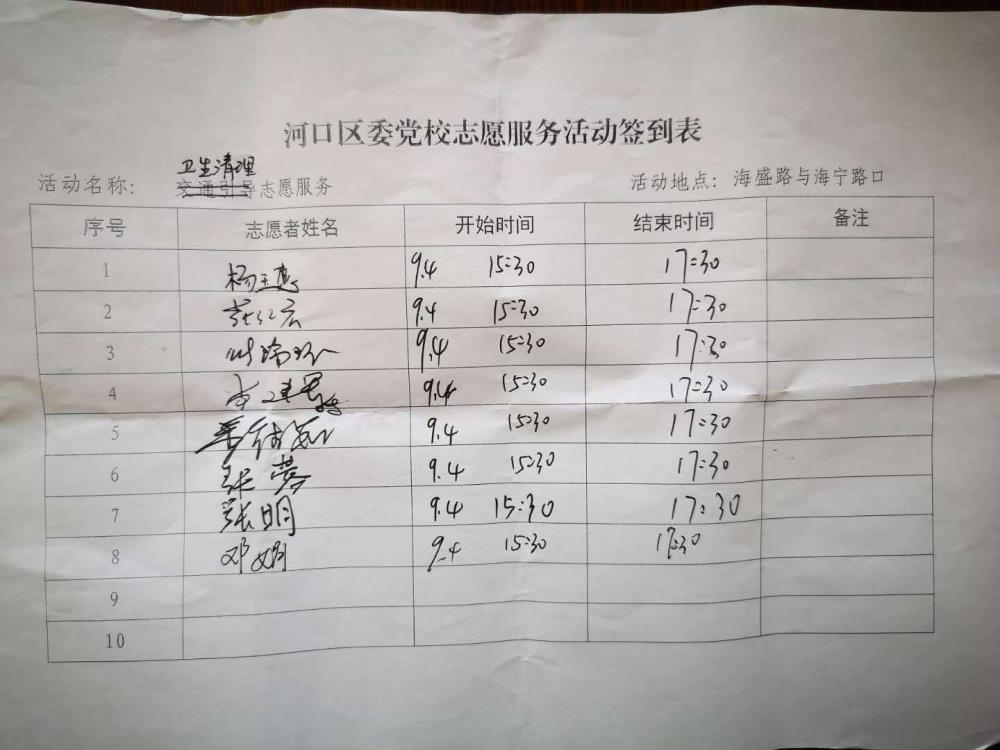 河口区委党校志愿服务活动签到表
卫生清理
活动名称：交通引导志愿服务 活动地点：海盛路与海宁路口
序号 志愿者姓名 开始时间 结束时间 备注
1 杨玉惠 9.4 15:30 17:30
2 9.4 15:30 17:30
3 9.4 15:30 17:30
4 9.4 15:30 17:30
5 9.4 15:30 17:30
6 张梦 9.4 15:30 17:30
7 张明 9.4 15:30 17:30
8 邓娟 9.4 15:30 17:30
9
10